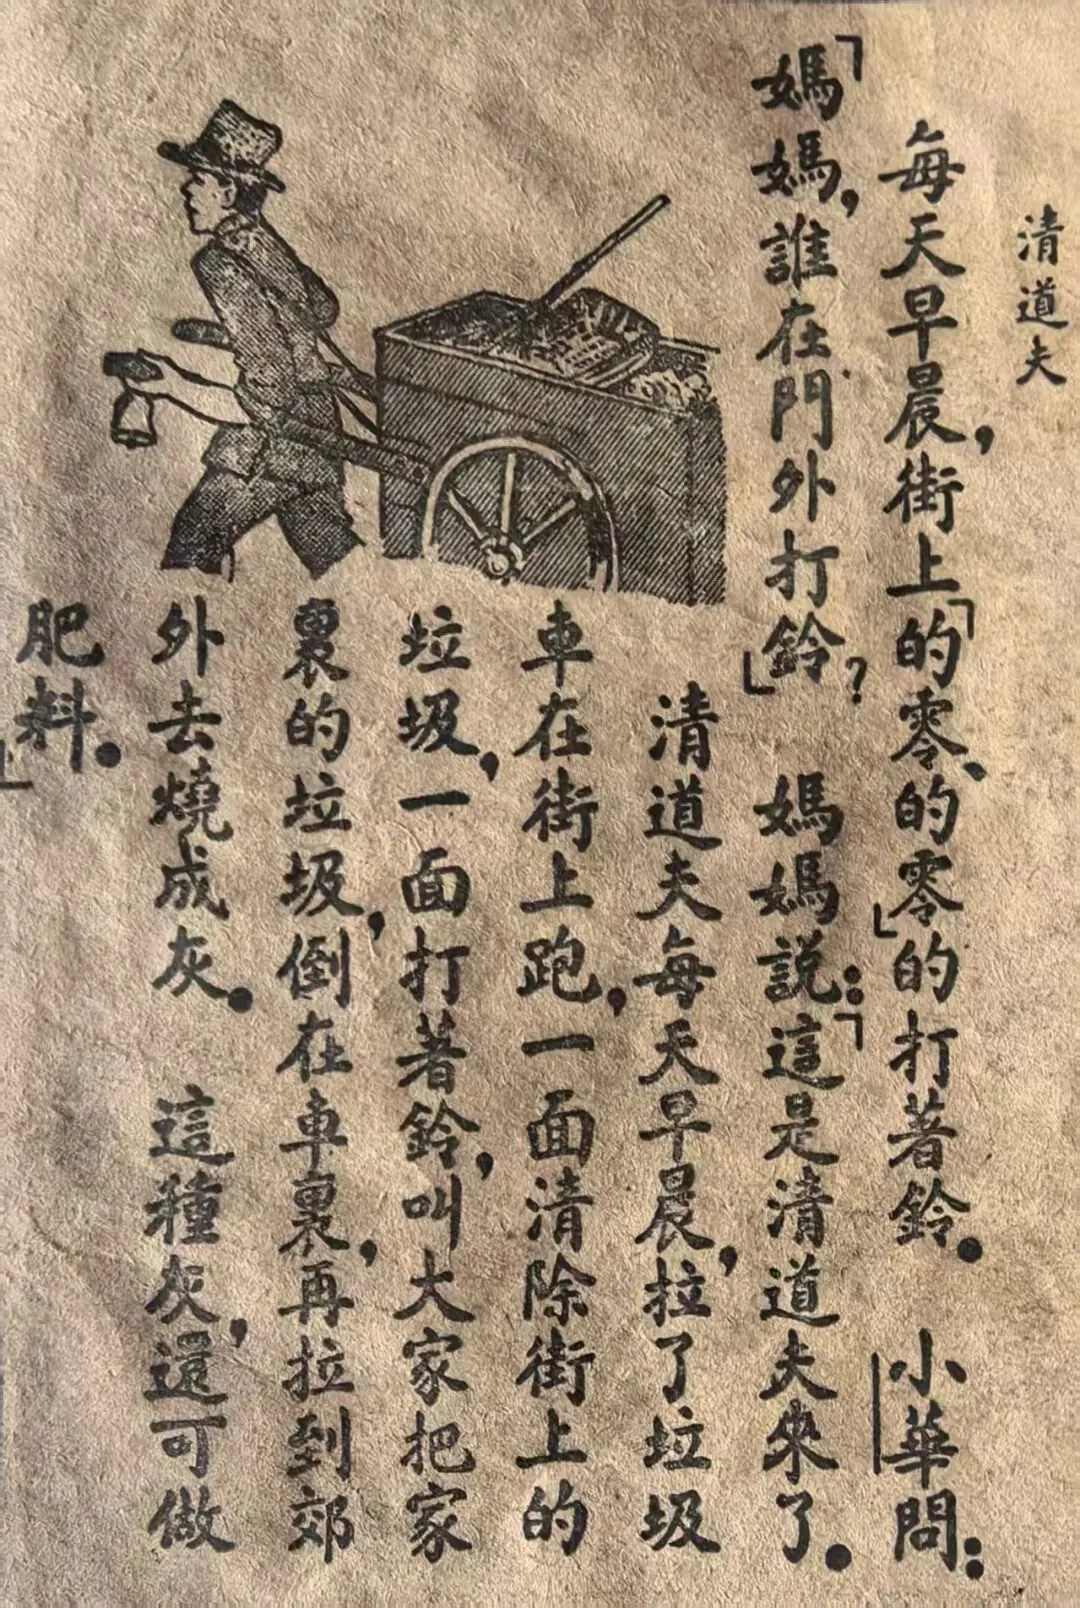 清道夫
每天早晨,街上「的零、的零」的打著鈴。小華問:
「媽媽,誰在門外打鈴?」媽媽説:「這是清道夫來了。
清道夫每天早晨,拉了垃圾
車在街上跑,一面清除街上的
垃圾,一面打著鈴,叫大家把家
裏的垃圾,倒在車裏,再拉到郊
外去燒成灰。這種灰,還可做
肥料。」